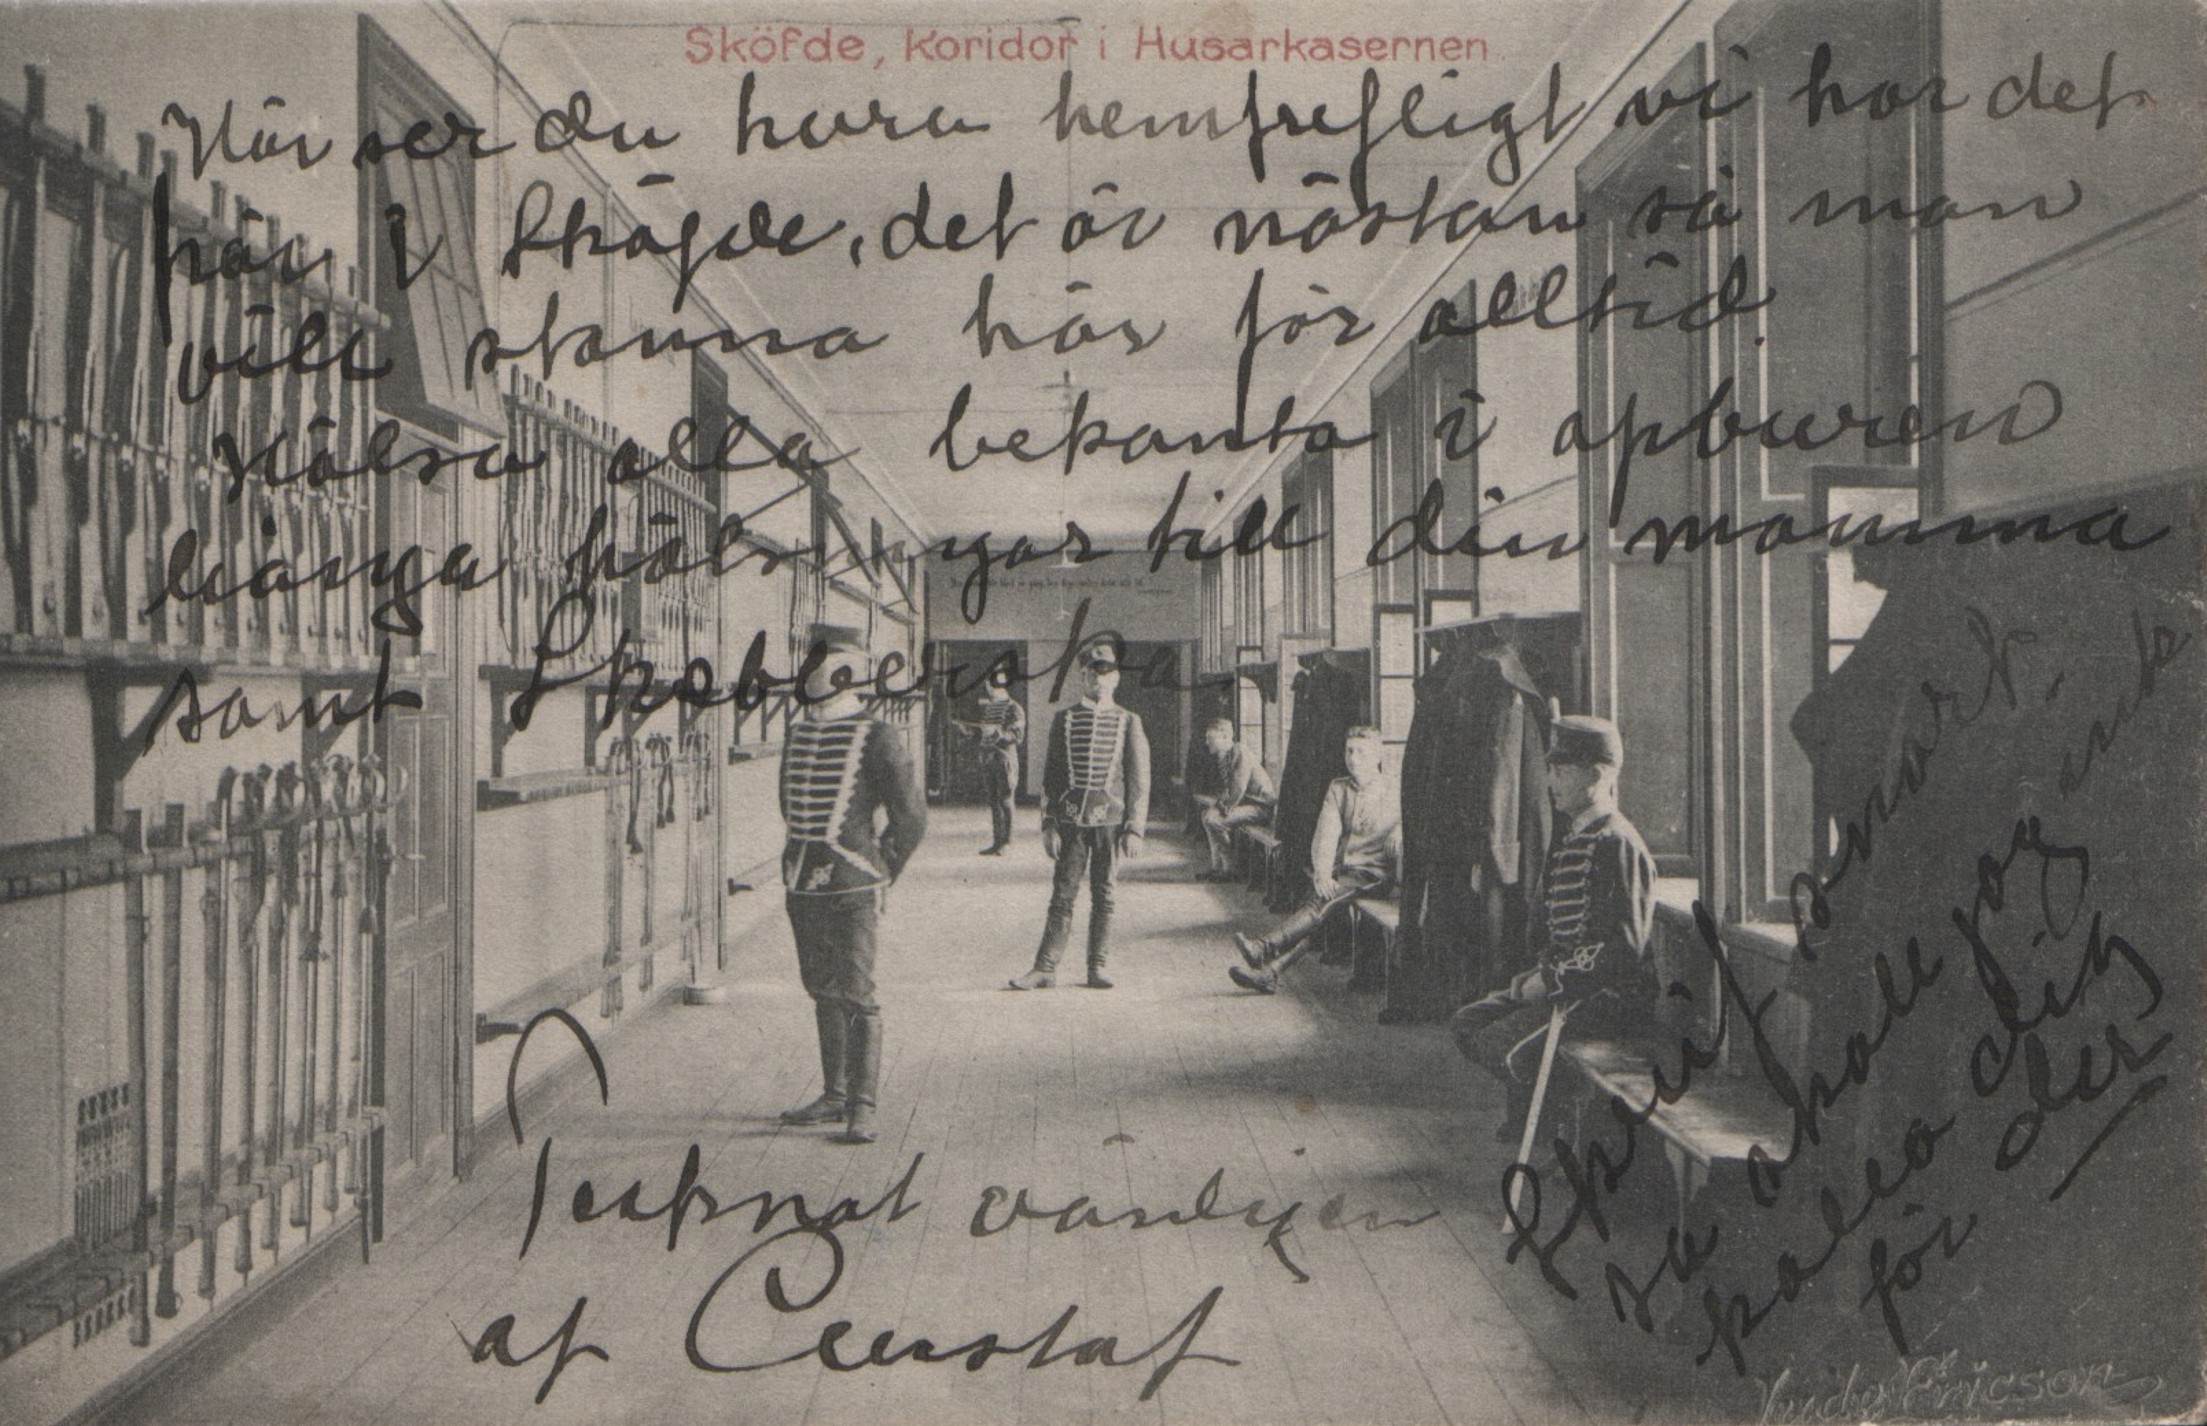 Sköfde, Koridor i Husarkasernen
Här ser du hura hemtrefligt vi har det
här i Sköfde, det är nästan så man
vill stanna här för alltid.
Hälsa alla bekanta i apburen
många hälsningar till din mamma
samt Skebberska.
Tecknat vänligen
af Gustaf
Skrif snart.
så skall jag ank
kalla dig
för der
Ericson